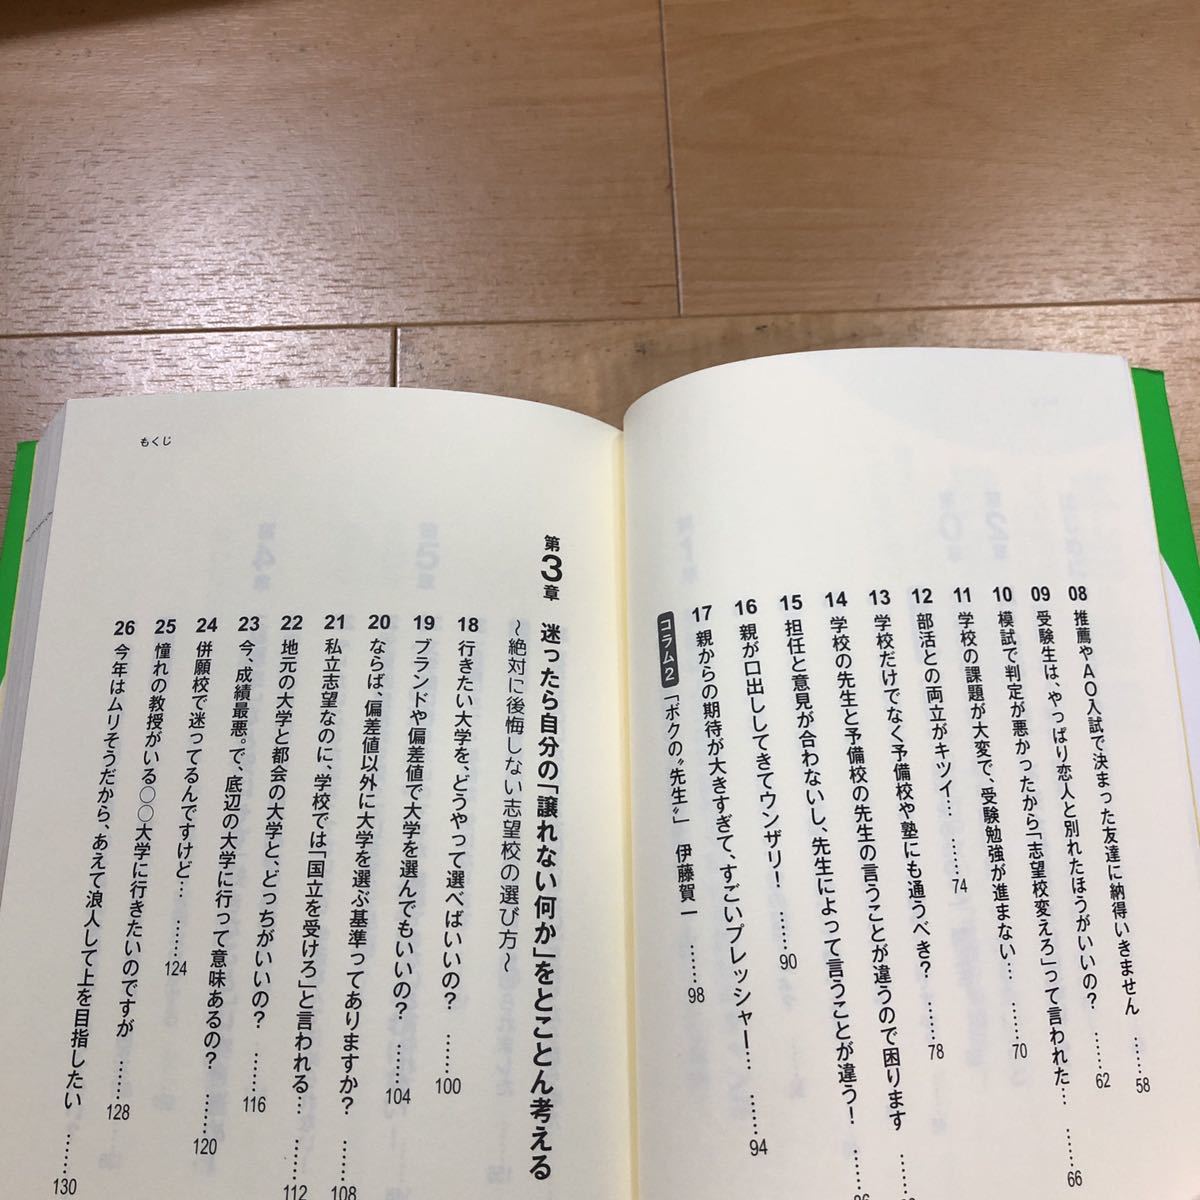 08 推薦やAO入試で決まった友達に納得いきません ……58
09 受験生は、やっぱり恋人と別れたほうがいいの? ……62
10 模試で判定が悪かったから「志望校変えろ」って言われた… ……66
11 学校の課題が大変で、受験勉強が進まない… ……70
12 部活との両立がキツイ… ……74
13 学校だけでなく予備校や塾にも通うべき? ……78
14 学校の先生と予備校の先生の言うことが違うので困ります ……
15 担任と意見が合わないし、先生によって言うことが違う! ……86
16 親が口出ししてきてウンザリ! ……90
17 親からの期待が大きすぎて、すごいプレッシャー… ……94
コラム2 「ボクの〝先生〟」 伊藤賀一 ……98
もくじ
第3章 迷ったら自分の「譲れない何か」をとことん考える
〜絶対に後悔しない志望校の選び方〜
18 行きたい大学を、どうやって選べばいいの? ……100
19 ブランドや偏差値で大学を選んでもいいの? ……104
20 ならば、偏差値以外に大学を選ぶ基準ってありますか? ……108
21 私立志望なのに、学校では「国立を受けろ」と言われる… ……112
22 地元の大学と都会の大学と、どっちがいいの? ……116
23 今、成績最悪。で、底辺の大学に行って意味あるの? ……120
24 併願校で迷ってるんですけど… ……124
25 憧れの教授がいる〇〇大学に行きたいのですが ……128
26 今年はムリそうだから、あえて浪人して上を目指したい ……130